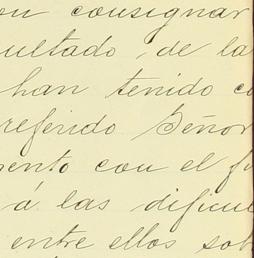 on consignar
ultado de la
han tenido co
referido Señor
mento con el fi
á las dificul
entre ellos sob